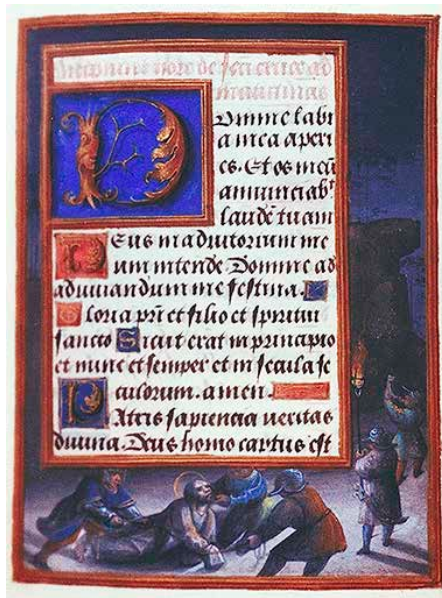 hore de cruce ad
matutinas
Domine labi
a mea aperi
es. Et os meū
annunciabt
laudē tuam
Deus in adiutorium me
um intende Domine ad
adiuuandum me festina.
Gloria pr̄i et filio et spiritui
sancto Sicut erat in principio
et nunc et semper et in secula se
culorum. amen.
Patris sapiencia veritas
diuina. Deus homo captus est